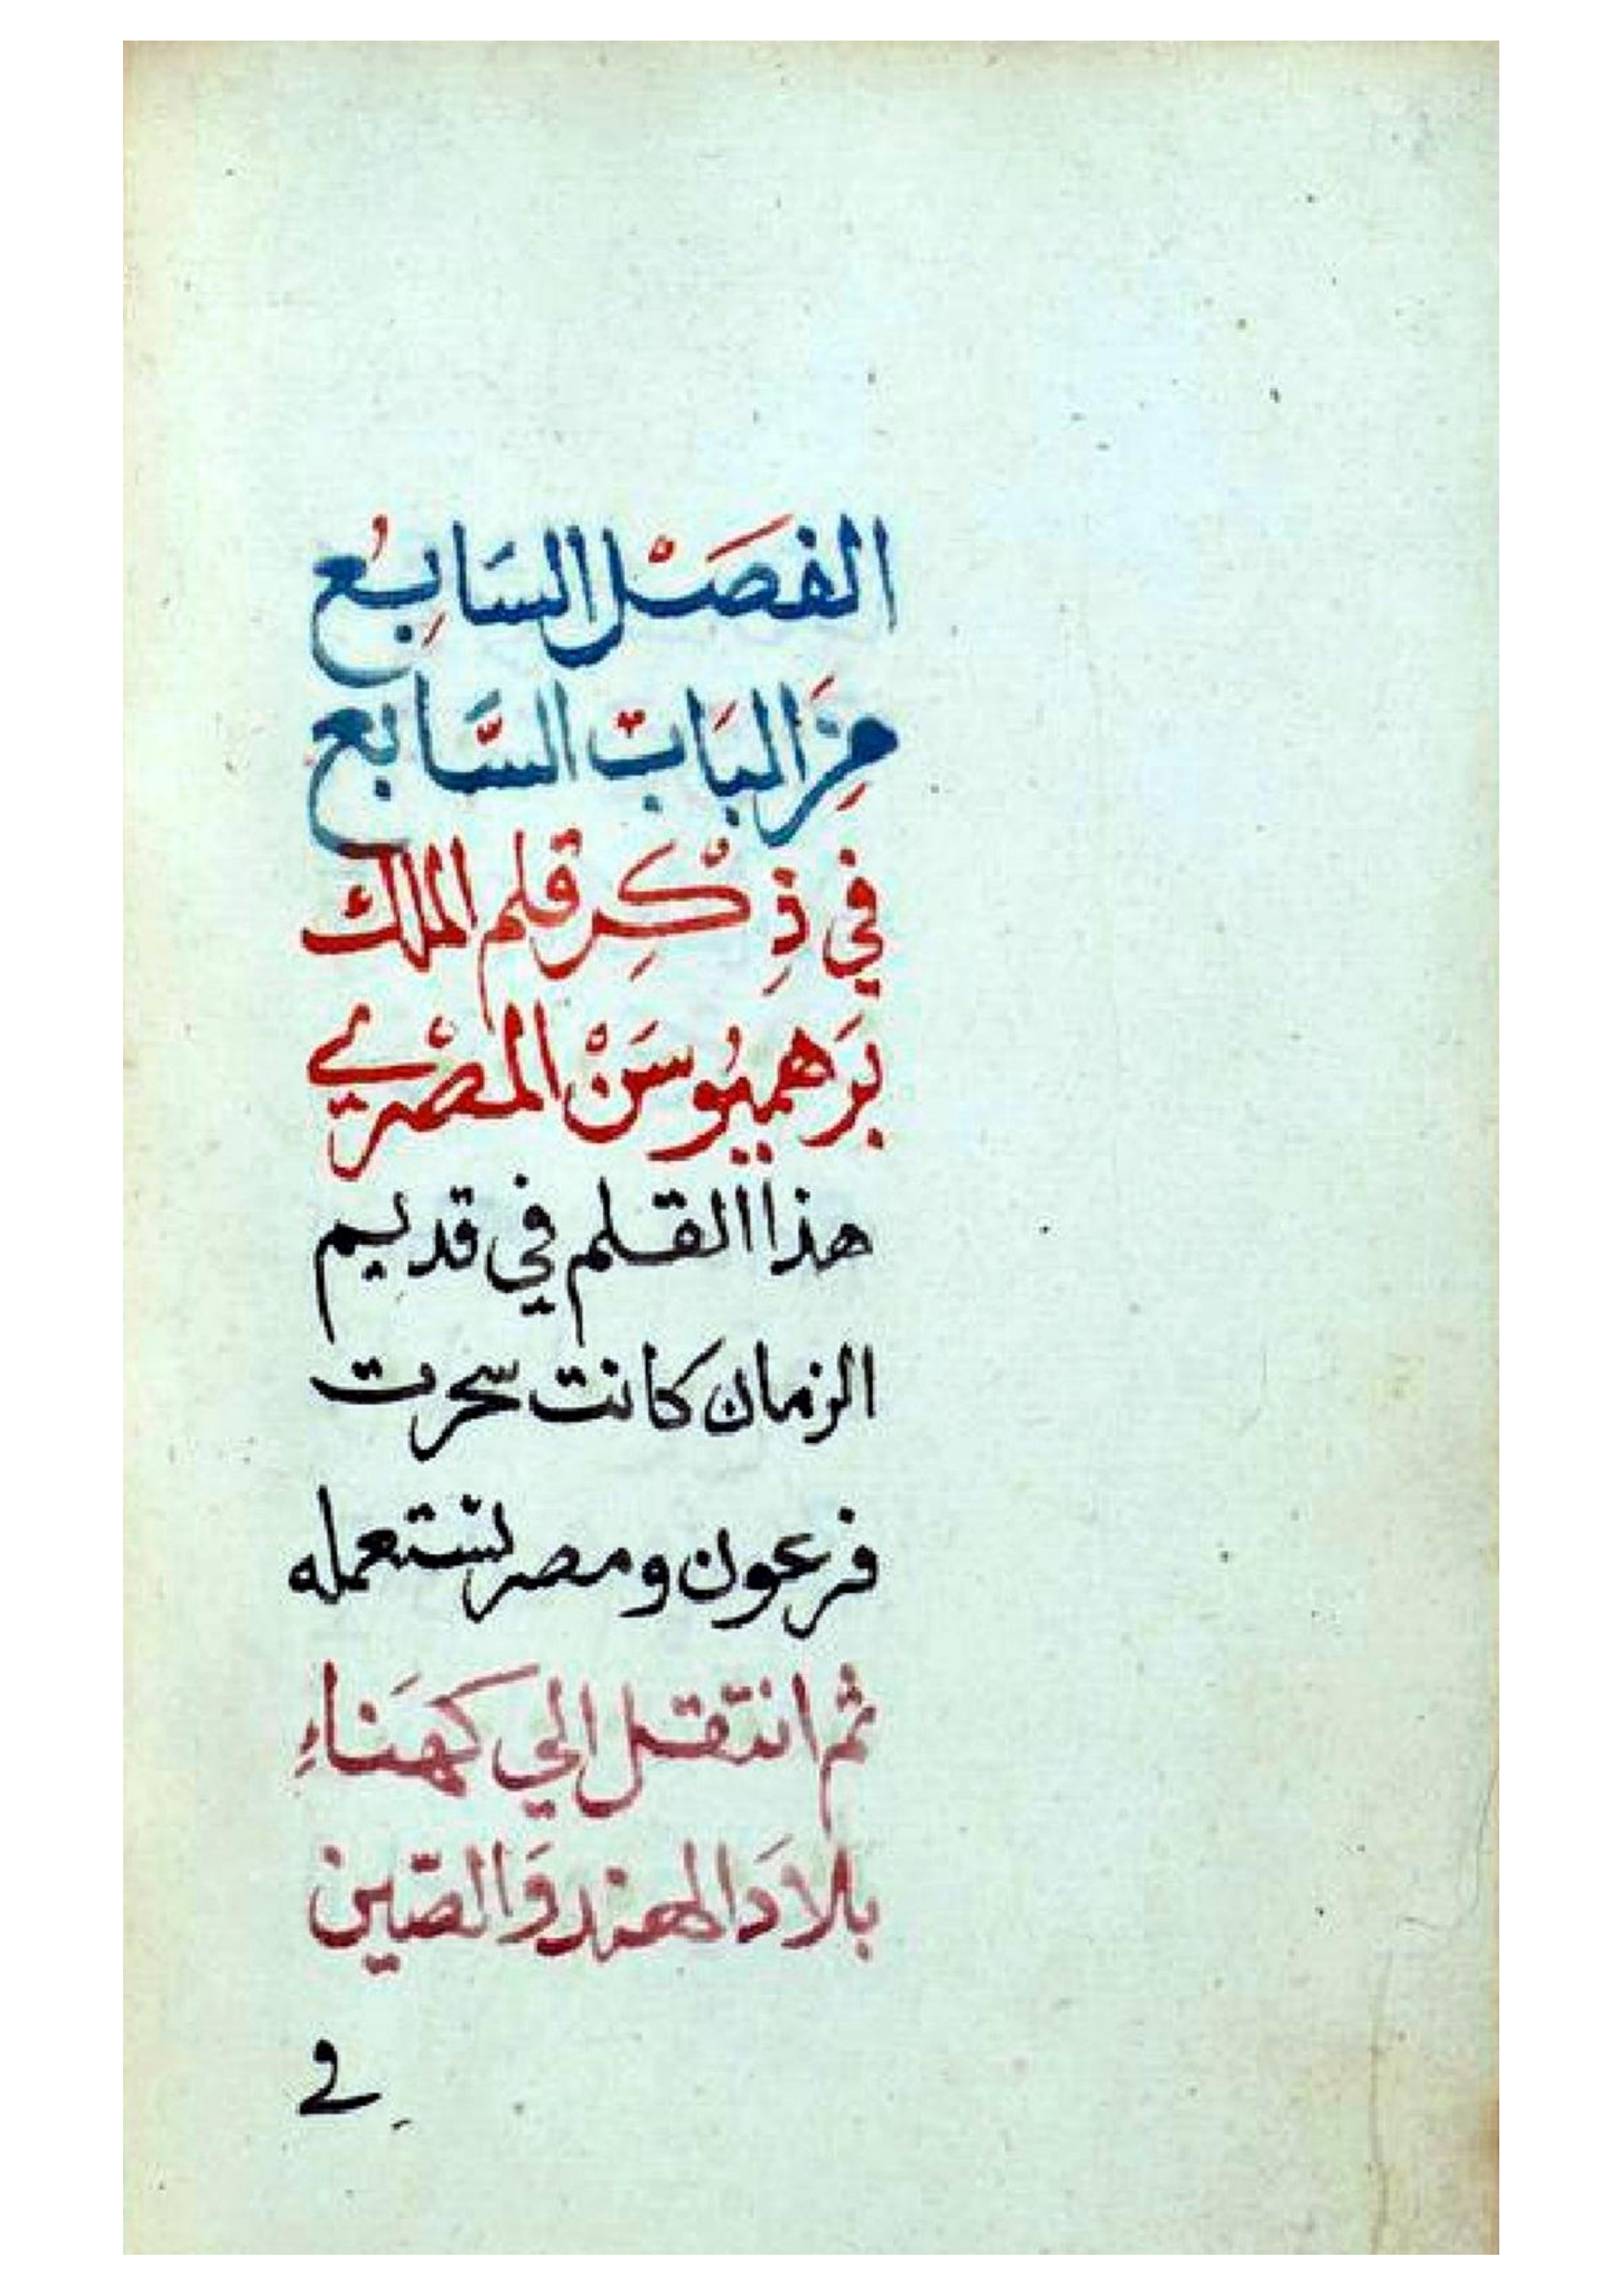 الفَصْل السَابِعُ
مِنَ البَابْ السَّابع
في ذِكْرِ قلم الملك
بَرَهميُوسَنْ المصْري
هذا القلم في قديم
الزمان كانت سحرت
فرعون ومصر تستعمله
ثم انتقل الي كهَناءِ
بلادَ الهند وَالصّين
في